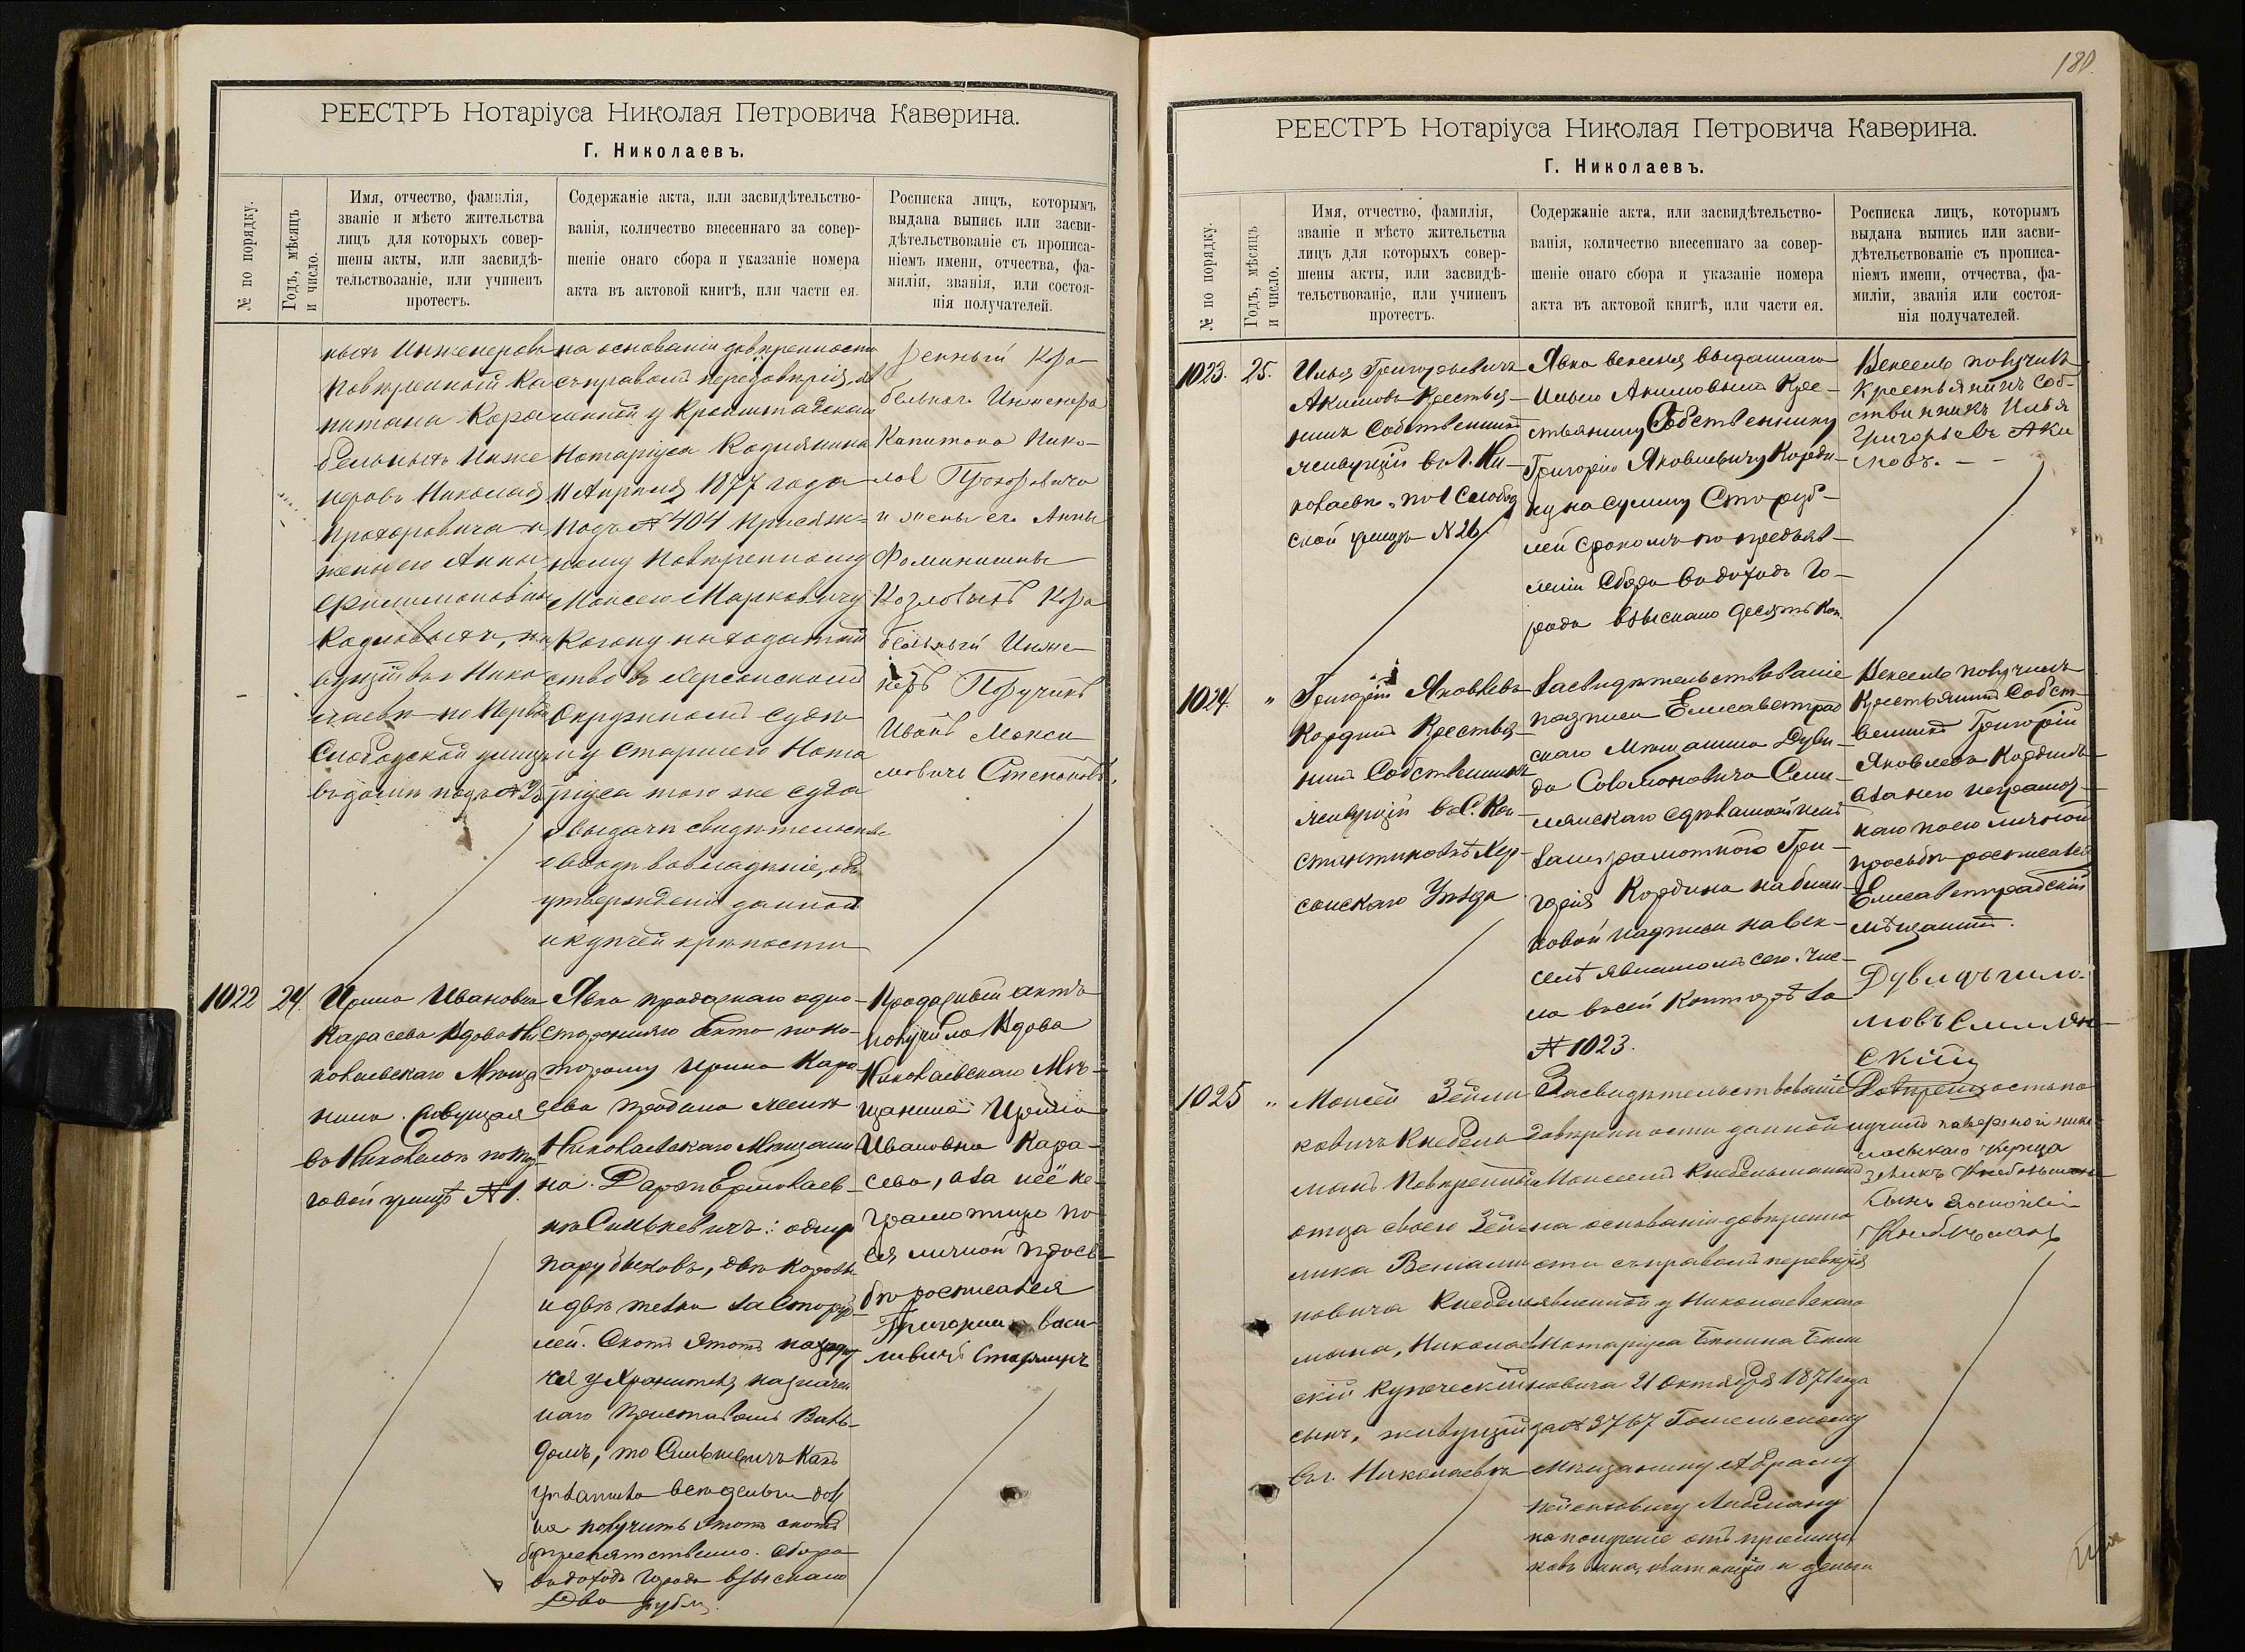 РЕЕСТРЪ Нотаріуса Николая Петровича Каверина.
Г. Николаевъ.
№ по порядку.
Годъ, мѣсяцъ
и число.
Имя, отчество, фамилія,
званіе и мѣсто жительства
лицъ для которыхъ совер-
шены акты, или засвидѣ-
тельствованіе, или учиненъ
протестъ.
Содержаніе акта, или засвидѣтельство-
ванія, количество внесеннаго за совер-
шеніе онаго сбора и указаніе номера
акта въ актовой книгѣ, или части ея.
Росписка лицъ, которымъ
выдана выпись или засви-
дѣтельствованіе съ прописа-
ніемъ имени, отчества, фа-
миліи, званія, или состоя-
нія получателей.
ныхъ Инженеровъ
повѣренный Ка
питана Кора
бельныхъ Инже
неровъ Николая
Прохоровича и
жены его Анны
Козловыхъ, жи
вущій въ г. Нико
лаевѣ по
Слободской улицѣ
въ домѣ подъ №
на основаніи довѣренности
съ правомъ передовѣрія, яв
ленной у Кронштадтскаго
Нотаріуса
11 Апрѣля 1877 года
подъ № 404 Присяж-
ному Повѣренному
Моисею Марковичу
Когану на ходатай
ство въ Херсонскомъ
Окружномъ Судѣ
и у Старшаго Нота
ріуса того же Суда
о выдачи свидѣтельства
о вводѣ во владѣніе, объ
утвержденіи данной
и купчей крѣпости
ренный Кора
бельнаго Инженера
Капитана Нико-
лая Прохоровича
и жены его Анны
Козловыхъ Кора
бельный Инже-
неръ Поручикъ
Иванъ Макси
мовичъ Степановъ.
1022
24.
Ирина Ивановна
Карасева Вдова Ни
колаевскаго Мѣща
нина. Живущая
въ Николаевѣ по Тор-
говой улицѣ № 1.
Явка продажнаго одно-
сторонняго акта по ко-
торому Ирина Кара-
сева продала женѣ
Николаевскаго Мѣщани
на. Дарьѣ Ермолаев-
нѣ Синькевичъ: одну
пару быковъ, двѣ коровы
и двѣ телки за Сто руб-
лей. Скотъ этотъ находит
ся у Хранителя, назначен
наго Приставомъ
то Синькевичъ какъ
уплатила всѣ деньги дол
на получить этотъ скотъ
безпрепятственно. Сбора
въ доходъ города взыскано
Два рубл.
Продажный актъ
получила Вдова
Николаевскаго Мѣ-
щанина Ирина
Ивановна Кара-
сева, а за неё не-
грамотную по
ея личной прось-
бѣ росписался
Григорий Васи-
льевичъ
180.
РЕЕСТРЪ Нотаріуса Николая Петровича Каверина.
Г. Николаевъ.
№ по порядку.
Годъ, мѣсяцъ
и число.
Имя, отчество, фамилія,
званіе и мѣсто жительства
лицъ для которыхъ совер-
шены акты, или засвидѣ-
тельствованіе, или учиненъ
протестъ.
Содержаніе акта, или засвидѣтельство-
ванія, количество внесеннаго за совер-
шеніе онаго сбора и указаніе номера
акта въ актовой книгѣ, или части ея.
Росписка лицъ, которымъ
выдана выпись или засви-
дѣтельствованіе съ прописа-
ніемъ имени, отчества, фа-
миліи, званія или состоя-
нія получателей.
1023.
25.
Илья Григорьевичъ
Акимовъ Крестья-
нинъ Собственникъ
живущій въ г. Ни-
колаевѣ по 1 Слобод
ской улицѣ № 26.
Явка векселя выданнаго
Ильею Акимовымъ Кре-
стьянину Собственнику
Григорію Яковлевичу Корди-
ну на сумму Сто руб-
лей срокомъ по предъяв-
леніи Сбора въ доходъ Го-
рода взыскано десять коп.
Вексель получилъ
Крестьянинъ Соб-
ственникъ Илья
Григорьевъ Аки
мовъ.
1024.
"
Григорій Яковлевъ
Кординъ Крестья-
нинъ Собственникъ
живущій въ С. Кон-
стантиновкѣ Хер-
сонскаго Уѣзда
Засвидѣтельствованіе
подписи Елисаветград
скаго Мѣщанина Дуви-
да Соломоновича Сми-
лянскаго сдѣланной имъ
за неграмотнаго Гри-
горія Кордина на блан-
ковой надписи на век-
селѣ явленномъ сего чис-
ла въ сей Конторѣ за
№ 1023.
Вексель получилъ
Крестьянинъ Собст-
венникъ Григорій
Яковлевъ Кординъ
а за него неграмот-
наго по его личной
просьбѣ росписался
Елисаветградскій
мѣщанинъ.
Дувидъ
мовъ Смилян-
скій
1025
"
Моисей Зейли
ковичъ Кнебель
манъ Повѣренный
отца своего Зей
лика Веніами
новича Кнебель
мана, Николаев
скій купеческій
сынъ, живущій
въ г. Николаевѣ
Засвидѣтельствованіе
довѣренности данной
Моисеемъ Кнебельманомъ
на основаніи довѣренно
сти съ правомъ перевѣрія
явленной у Николаевскаго
Нотаріуса
новича 21 Октября 1871 года
за № 3767 Гомельскому
мѣщанину Абраму
Либману
на полученіе отъ
ковъ вина, квитанцій и деньги
Довѣренность по
лучилъ повѣренной нико
лаевскаго купца
Зелика Кнебельмана
сынъ
Кнебельманъ